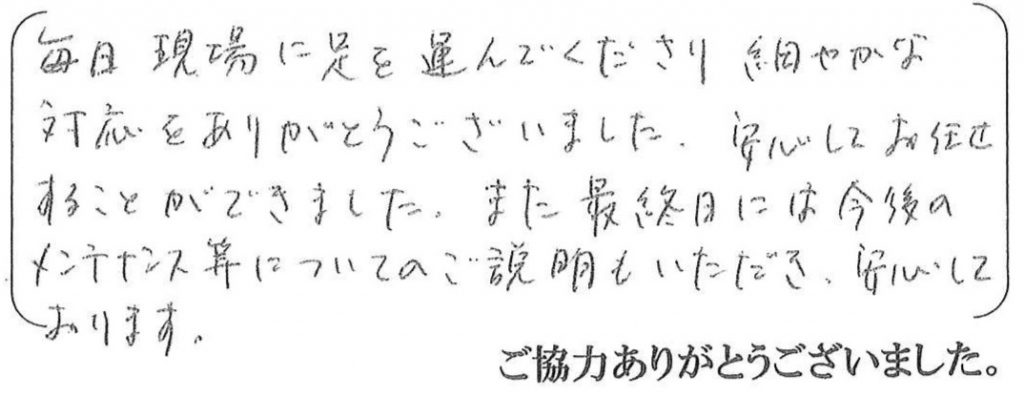 毎日現場に足を運んでくださり細やかな
対応をありがとうございました。安心してお任せ
することができました。また最終日には今後の
メンテナンス等についてのご説明もいただき、安心して
おります。
ご協力ありがとうございました。